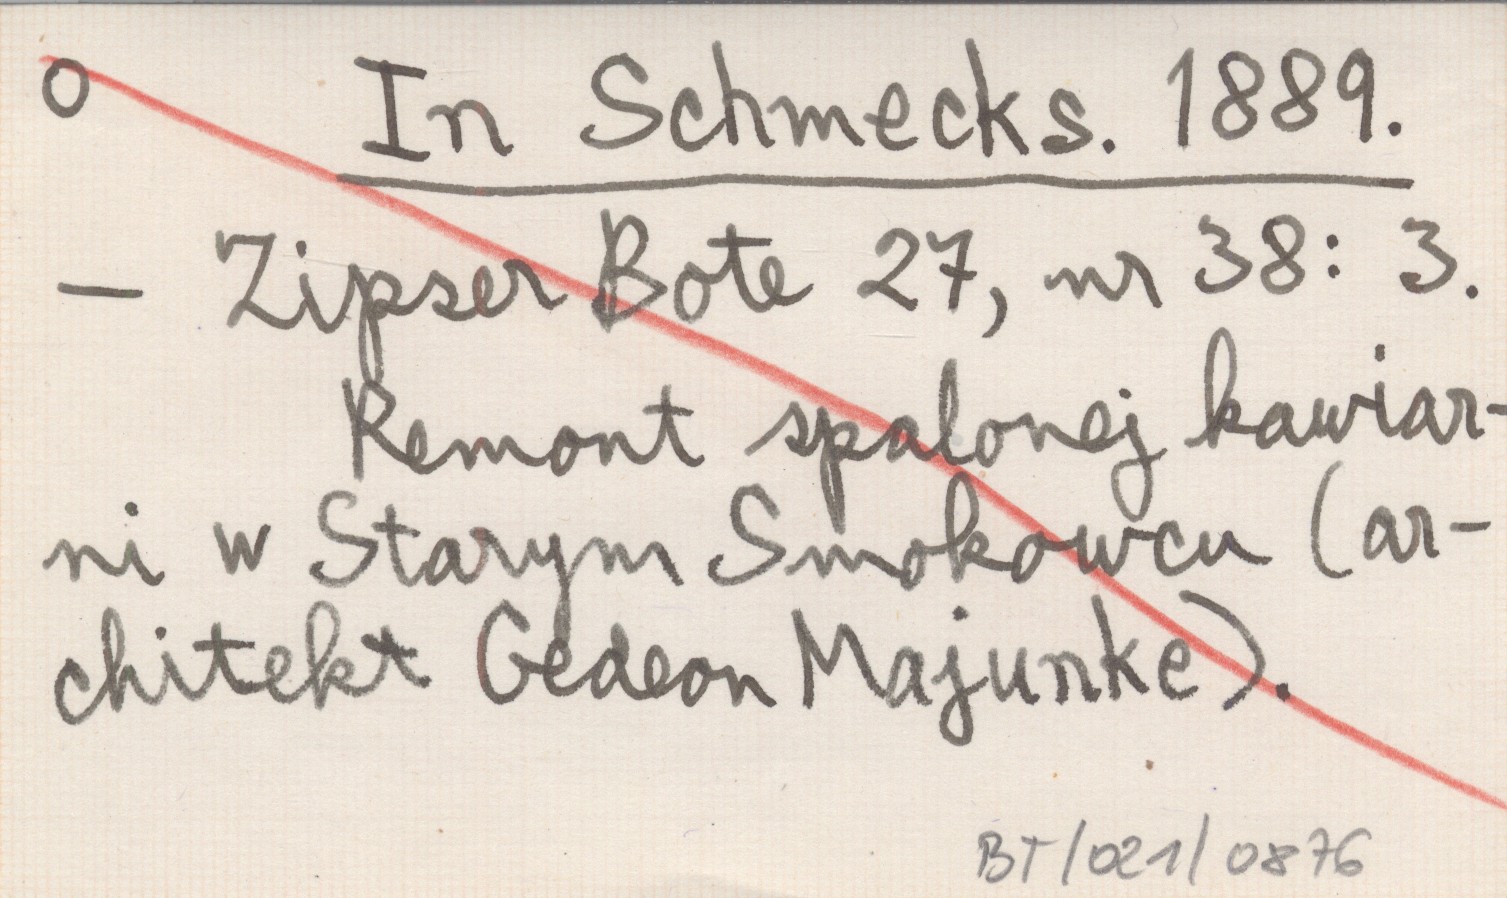 O In Schmecks. 1889.
— Zipser Bote 27, nr 38: 3.
Remont spalonej kawiar-
ni w Starym Smokowcu (ar-
chitekt Gedeon Majunke).
BT/021/0876